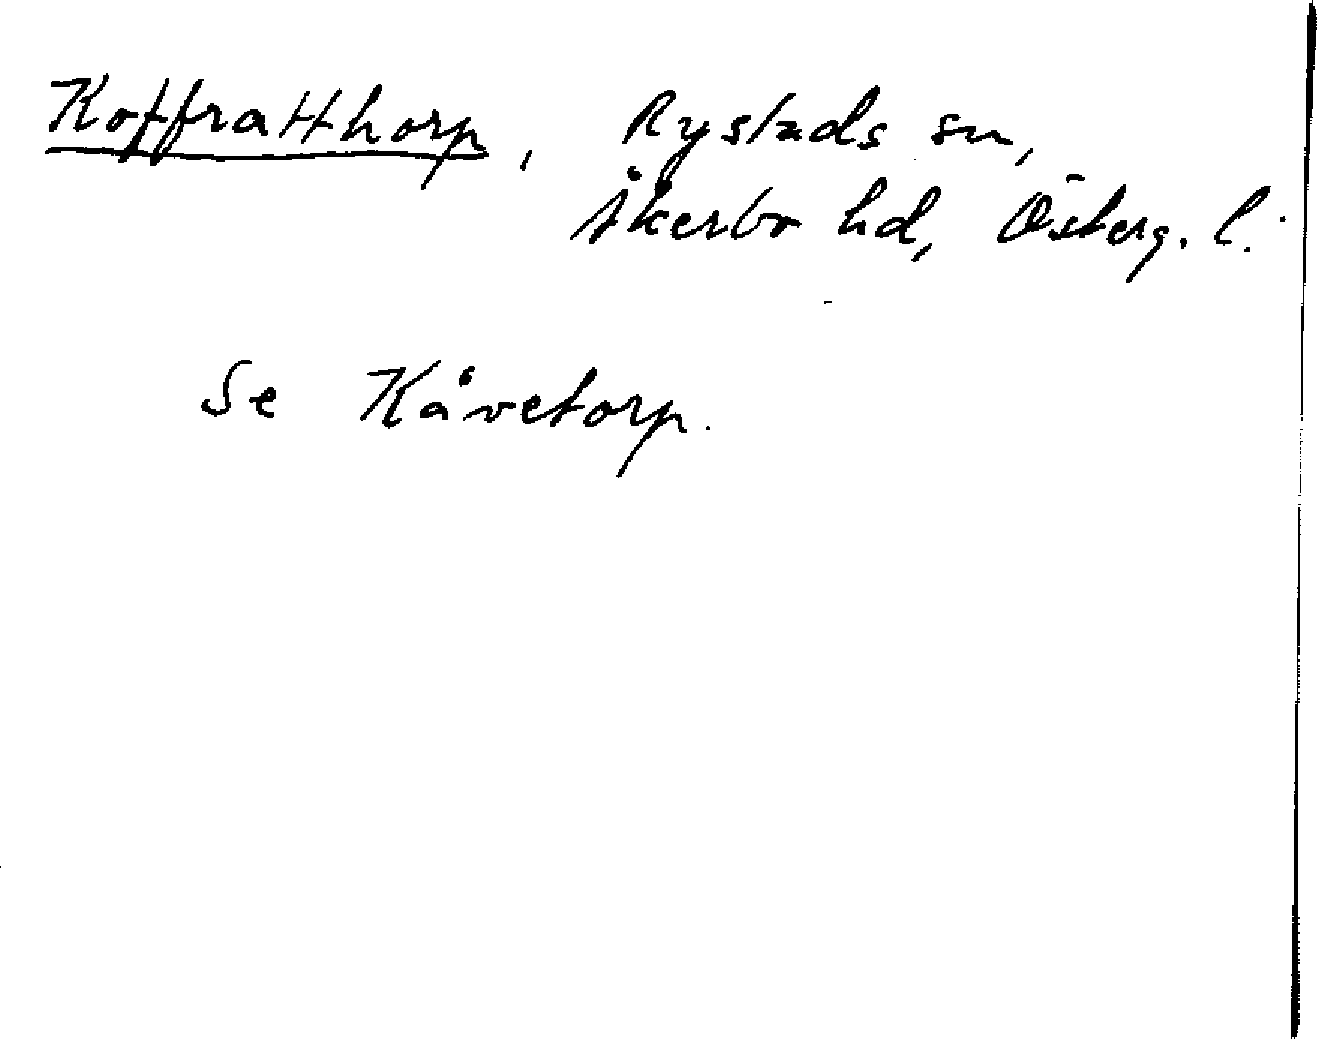 Koffratthorp, Rystads sn,
Åkerbo hd, Österg. l.
Se Kåvetorp.